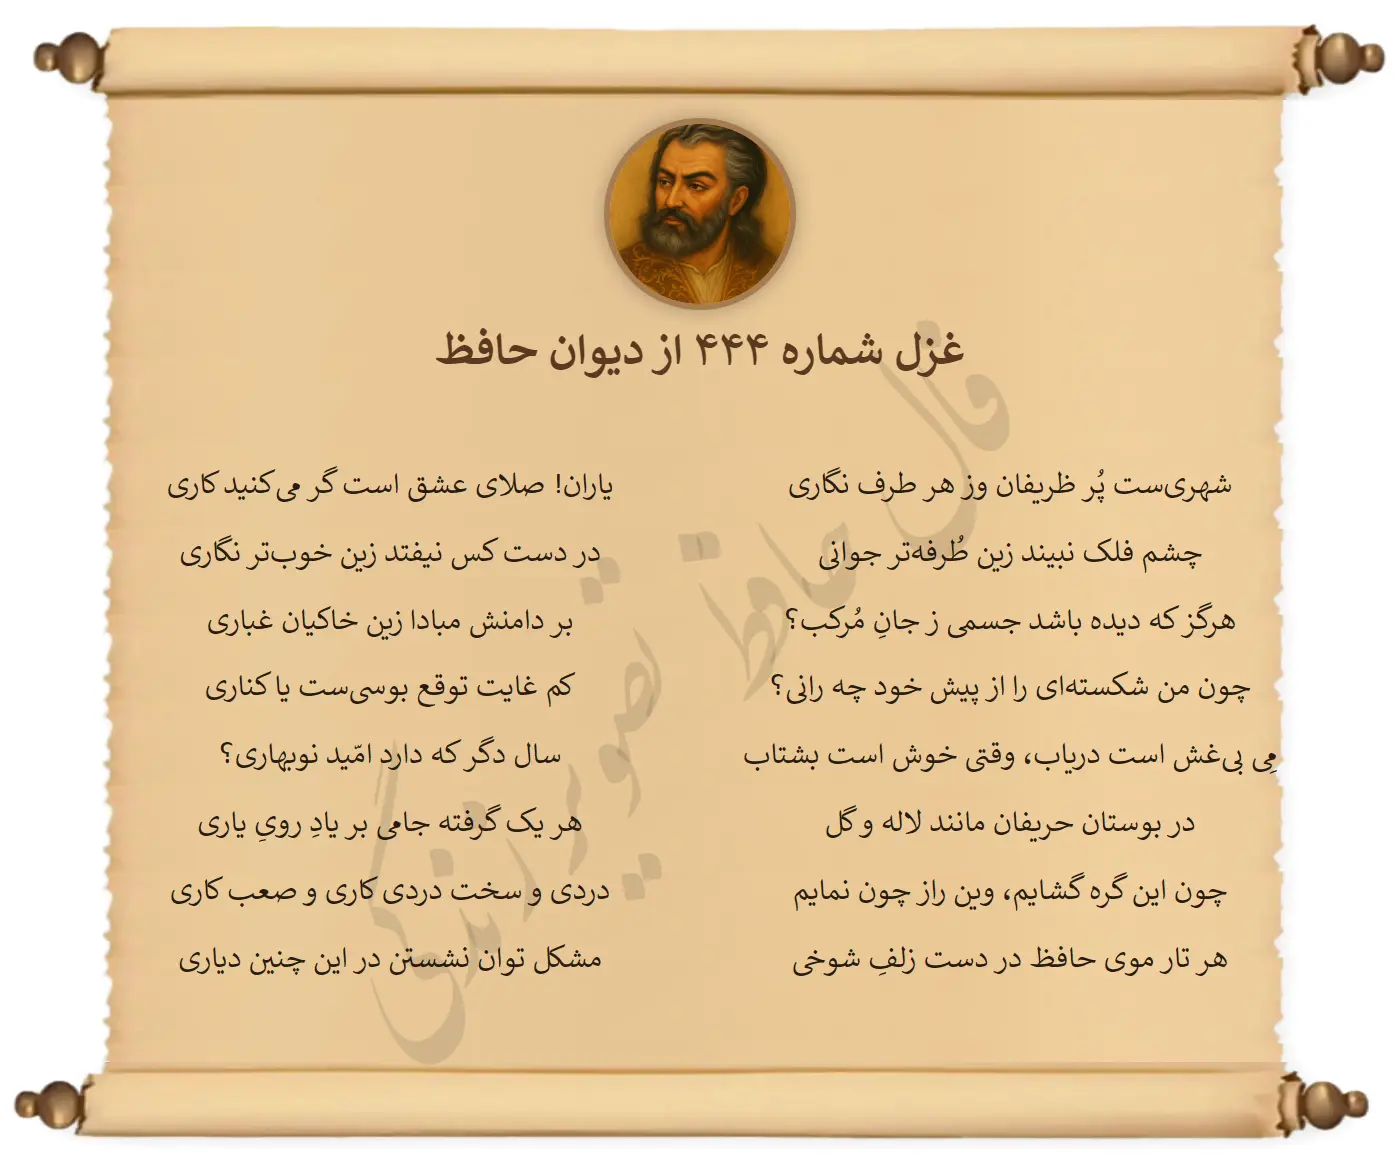 غزل شماره ۴۴۴ از دیوان حافظ
شهری‌ست پُر ظریفان وز هر طرف نگاری
یاران! صلای عشق است گر می‌کنید کاری
چشم فلک نبیند زین طُرفه‌تر جوانی
در دست کس نیفتد زین خوب‌تر نگاری
هرگز که دیده باشد جسمی ز جانِ مُرکب؟
بر دامنش مبادا زین خاکیان غباری
چون من شکسته‌ای را از پیش خود چه رانی؟
کم غایت توقع بوسی‌ست یا کناری
مِی بی‌غش است دریاب، وقتی خوش است بشتاب
سال دگر که دارد امّید نوبهاری؟
در بوستان حریفان مانند لاله و گل
هر یک گرفته جامی بر یادِ رویِ یاری
چون این گره گشایم، وین راز چون نمایم
دردی و سخت دردی کاری و صعب کاری
هر تار موی حافظ در دست زلفِ شوخی
مشکل توان نشستن در این چنین دیاری
فال حافظ تصویر زندگی